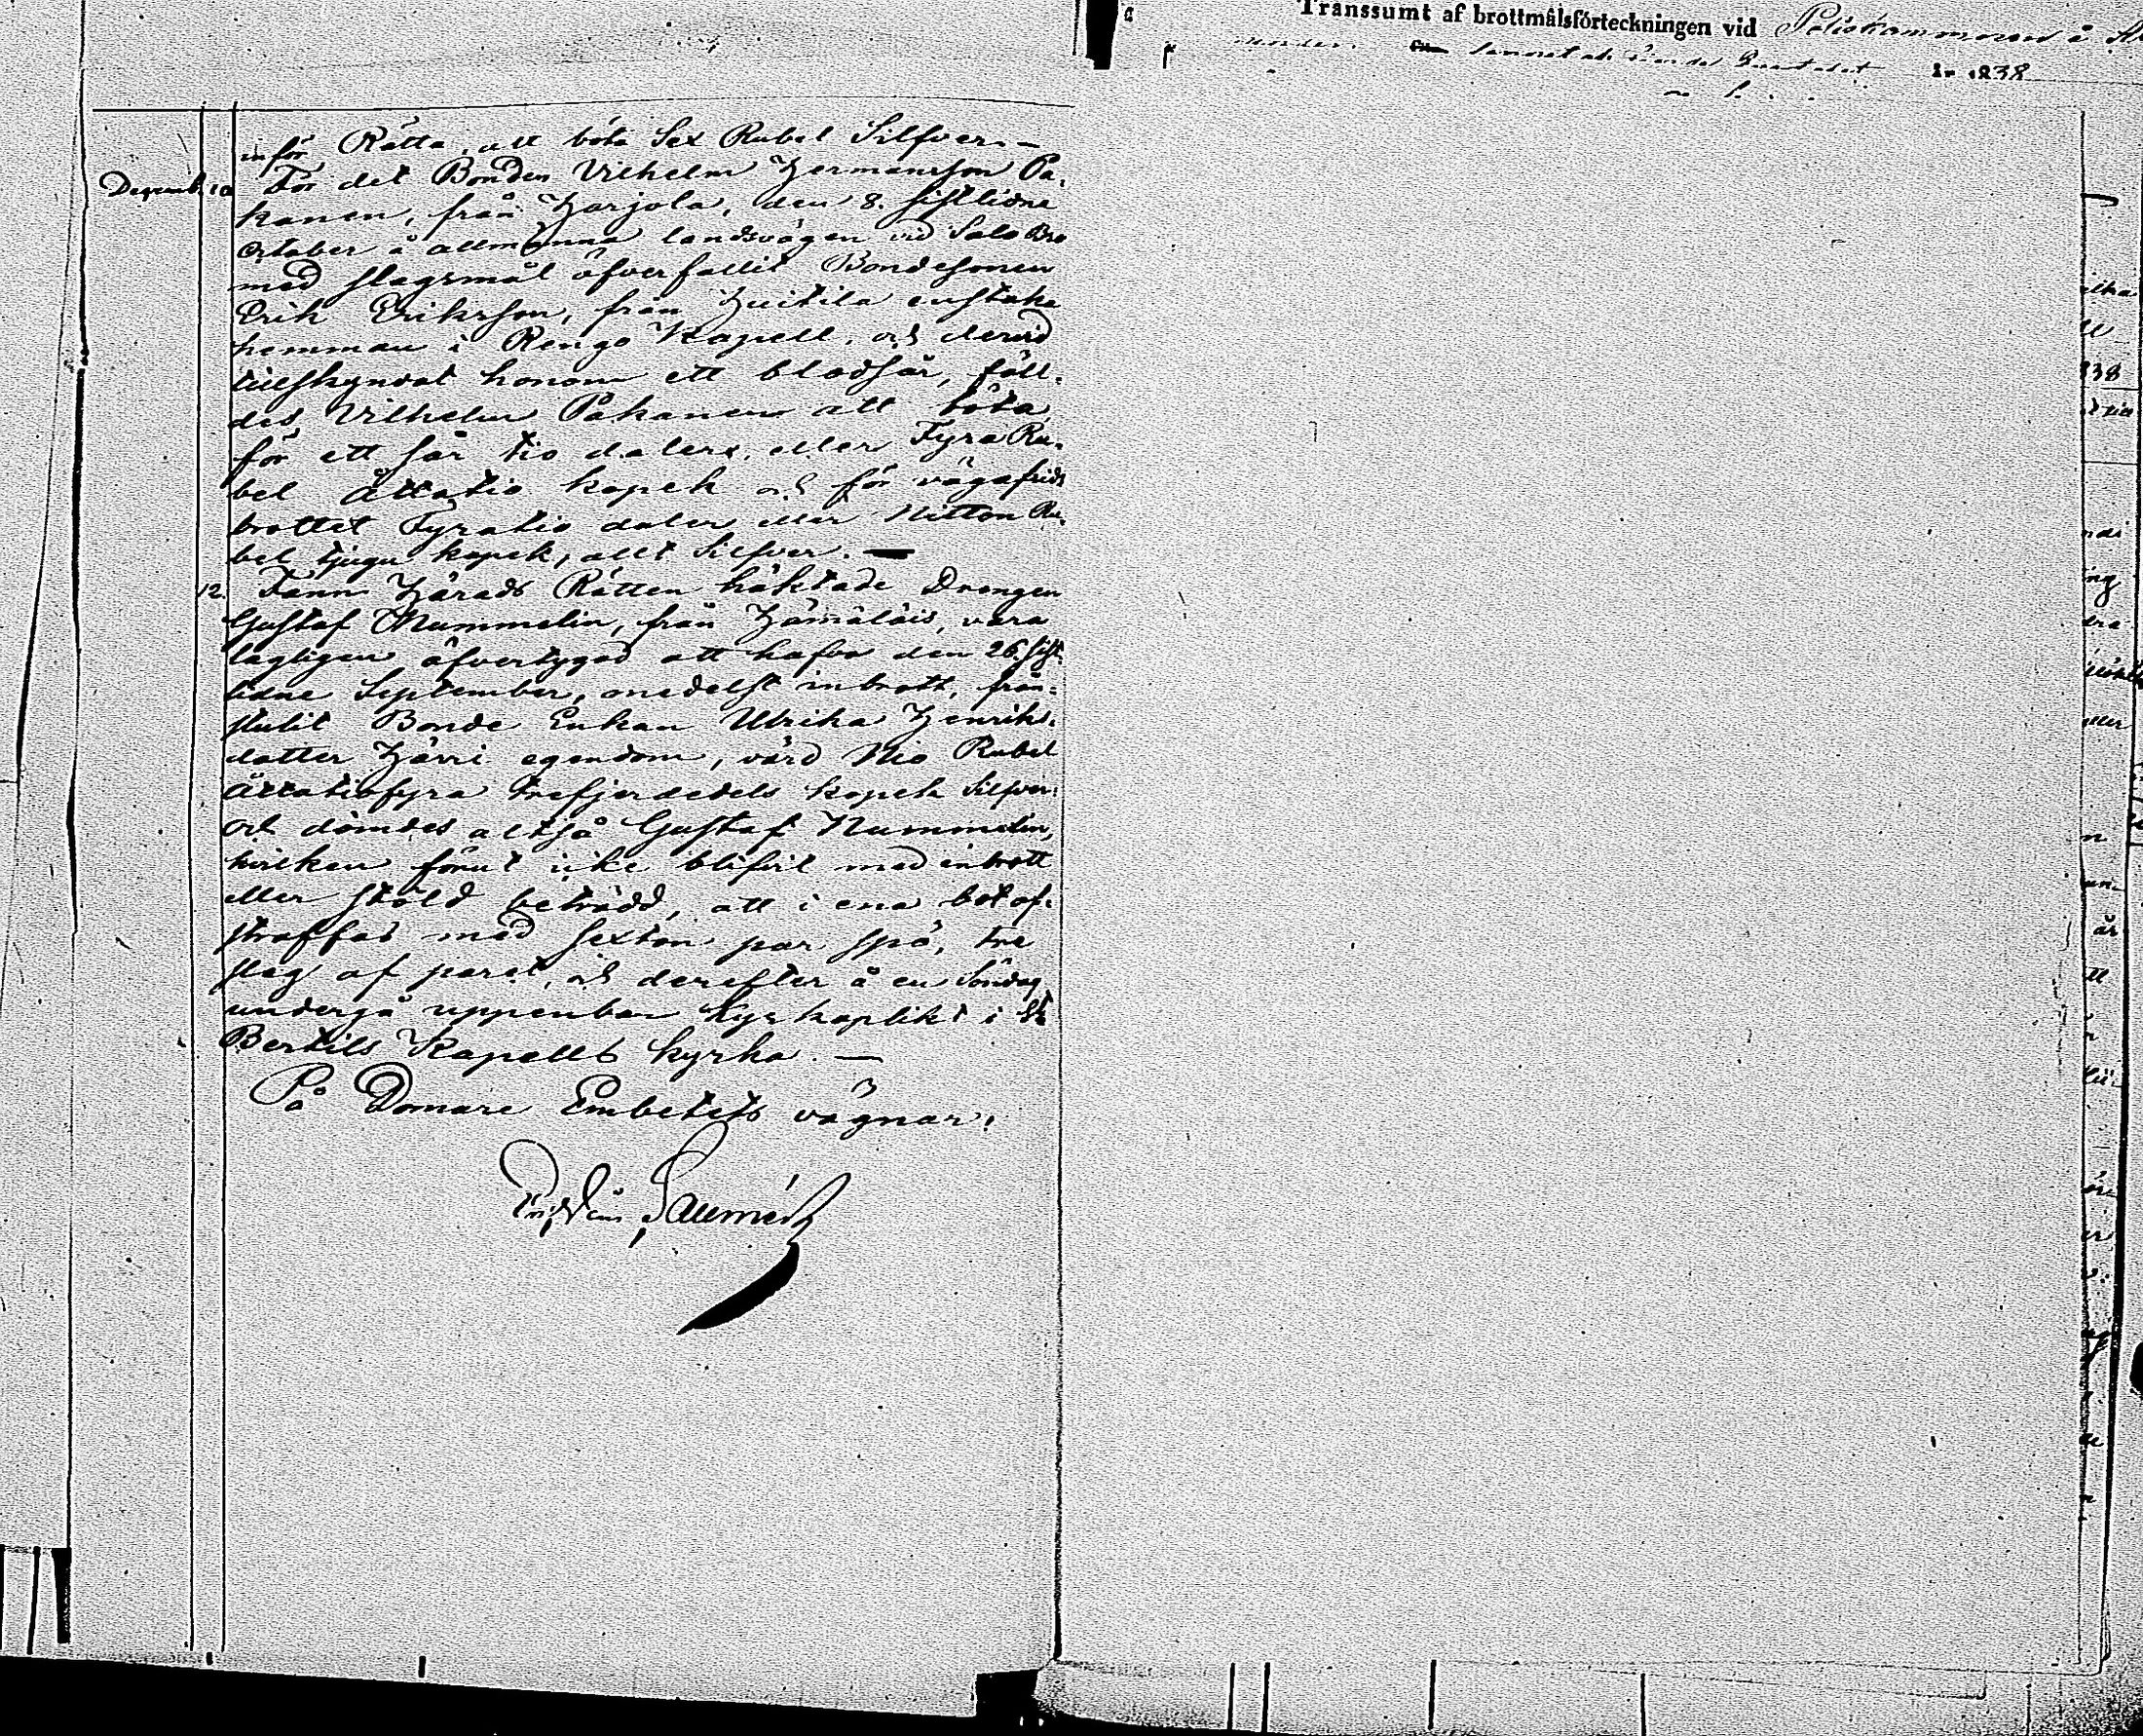 inför Rätta, att böta Sex Rubel Silfver. —
Decemb. 10 För det Bonden Vilhelm Hermansson Pa-
kanen, från Harjola, den 8. sistlidne
October å allmänna landsvägen vid Salo Bro
med slagsmål öfverfallit Bondesonen
Erik Eriksson, från Huitila enstaka
hemman i Rengo Kapell, och dervid
tillskyndat honom ett blodsår, fäll-
des Vilhelm Pakanen att böta
för ett sår tio daler, eller Fyra Ru-
bel åttatio kopek och för vägafrids
brottet Fyratio daler eller Nitton Ru-
bel tjugu kopek, allt Silfver. —
12. Fann Härads Rätten häktade Drengen
Gustaf Nummelin, från Hämäläis, vara
lagligen öfvertygad att hafva den 26. sist-
lidne September, medelst inbrott, från-
stulit Bonde Enkan Ulrika Henriks-
dotter Järvi egendom, värd Nio Rubel
åttatiofyra trefjerdedels kopek Silfver:
och dömdes altså Gustaf Nummelin,
hvilken förut icke blifvit med inbrott
eller stöld beträdd, att i ena bot af-
straffas med sexton par spö, tre
slag af paret, och derefter å en Söndag
undergå uppenbar kyrkoplikt i St
Bertils Kapells kyrka. —
På Domare Embetets vägnar:
Transsumt af brottmålsförteckningen vid Poliskammaren i
år 1838